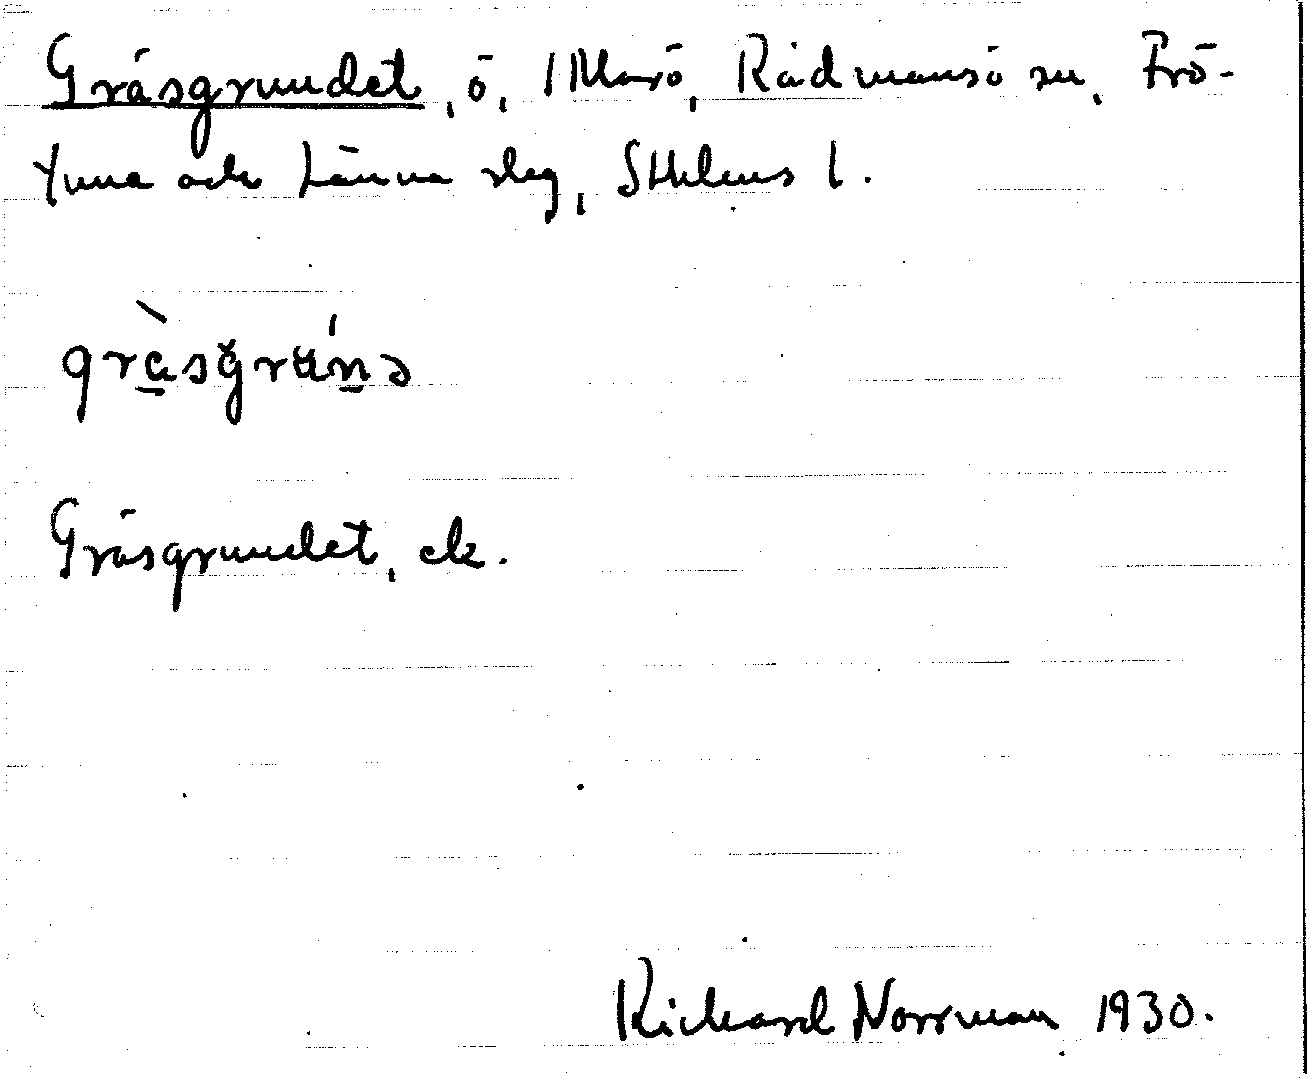 Gräsgrundet, ö, Marö, Rådmansö sn, Frö-
tuna och Länna slag, Sthlms l.
gräsgrunə
Gräsgrundet, ek.
Richard Norrman 1930.